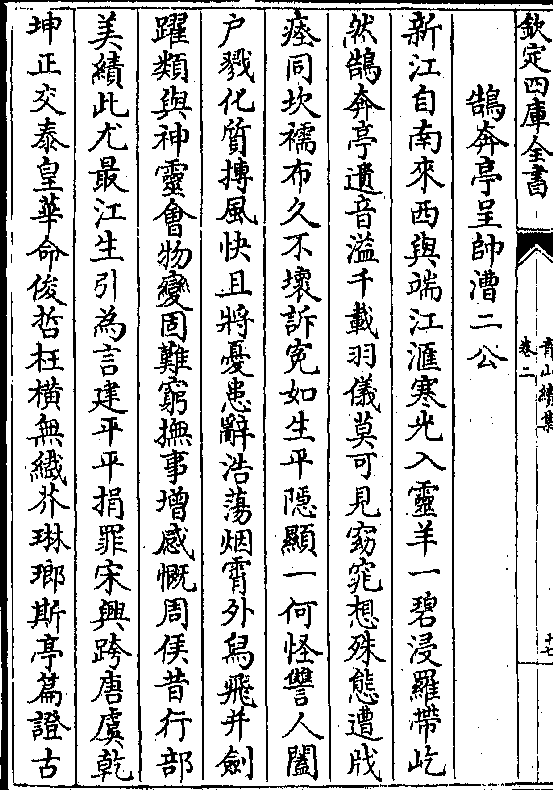 欽定四庫全書
青山續集
卷二
十七
鵠奔亭呈帥漕二公
新江自南來西與端江滙寒光入靈羊一碧浸羅帶屹
然鵠奔亭遺音溢千載羽儀莫可見窈窕想殊態遭戕
瘞同坎襦布久不壞訴寃如生平隱顯一何怪讐人闔
户戮化質摶風快且將憂患辭浩蕩烟霄外舄飛并劍
躍類與神靈會物變固難窮撫事增感慨周侯昔行部
美績此尤最江生引為言建平平捐罪宋興跨唐虞乾
坤正交泰皇華命俊哲枉橫無纎芥琳瑯斯亭篇證古